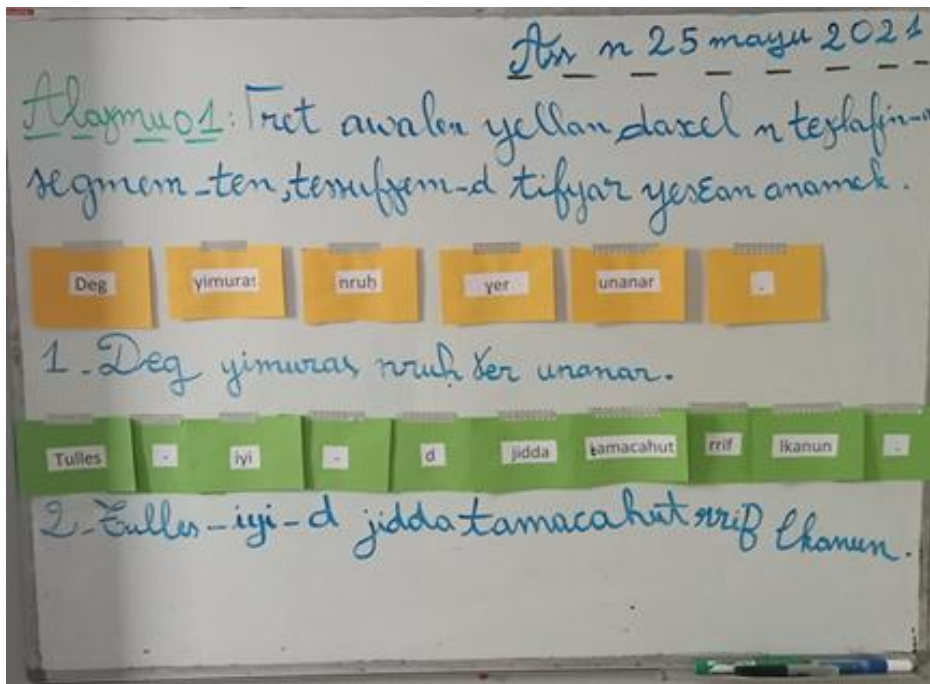 Ass n 25 mayu 2021
Alaɣmu 01: Tret awalen yellan daxel n
segmem-ten, tessufɣem-d tifyar yesɛan anamek.
Deg yimuras nruh ɣer unanar .
1-Deg yimuras nruh ɣer unanar.
Tulles - iyi - d jidda tamacahut rrif lkanun .
2-Tulles-iyi-d jidda tamacahut rrif lkanun.